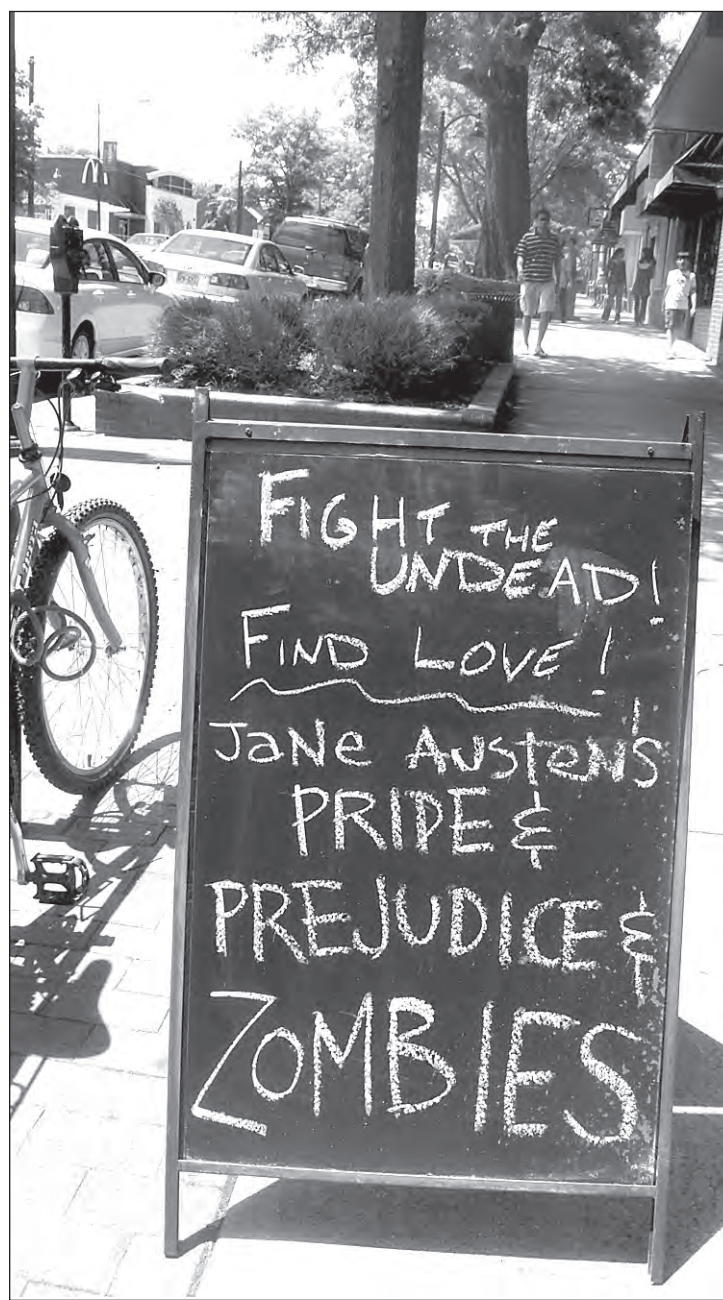 FIGHT THE
UNDEAD!
FIND LOVE!
JaNe AUSteN'S
PRIDE &
PREJUDICE &
ZOMBIES